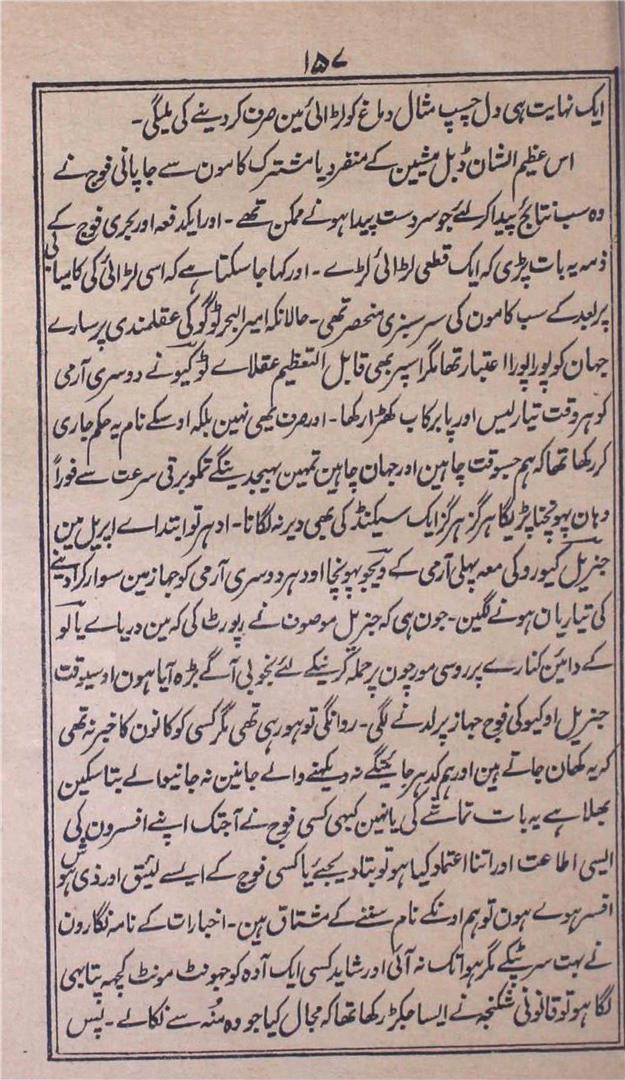 ۱۵۷
ایک نہایت ہی دل چسپ مثال دماغ کو لڑائی مین صرف کر دینے کی ملیگی۔
اس عظیم الشان ڈبل مشین کے منفرد یا مشترک کامون سے جاپانی فوج نے
وہ سب نتائج پیدا کرلئے جو سردست پیدا ہونے ممکن تھے۔ اور ایکدفعہ اور بحری فوج کے
ذمہ یہ بات پڑی کہ ایک قطعی لڑائی لڑے۔ اور کہا جا سکتا ہے کہ اسی لڑائی کی کامیابی
پر بعد کے سب کامون کی سرسبزی منحصر تھی۔ حالانکہ امیر البحر ٹوگو کی عقلمندی پر سارے
جہان کو پورا پورا اعتبار تھا مگر اسپر بھی قابل التعظیم عقلاے ٹوکیو نے دوسری آرمی
کو ہر وقت تیار لیس اور پابرکاب کھڑا رکھا۔ اور صرف یھی نہین بلکہ اوسکے نام یہ حکم جاری
کر رکھا تھا کہ ہم جسوقت چاہین اور جہان چاہین تمہین بہیجدینگے تمکو برقی سرعت سے فوراً
وہان پہونچنا پڑیگا ہرگز ہرگز ایک سیکنڈ کی بھی دیر نہ لگانا۔ ادہر تو ابتداے اپریل مین
جنریل کیورو کی معہ پہلی آرمی کے ویجو پہونچا اودہر دوسری آرمی کو جہاز مین سوار کرا دینے
کی تیاریان ہونے لگین۔ جون ہی کہ جنریل موصوف نے رپورٹ کی کہ مین دریاے یالو
کے دائین کنارے پر روسی مورچون پر حملہ کرنیکے لئے بخوبی آگے بڑہ آیا ہون اوسیوقت
جنریل اوکیو کی فوج جہاز پر لدنے لگی۔ روانگی تو ہو رہی تھی مگر کسی کو کانون کا خبر نہ تھی
کہ یہ کھان جاتے ہین اور ہم کدہر جائینگے نہ دیکہنے والے جانین نہ جانیوالے بتا سکین
بھلا ہے یہ بات تماشے کی یا نہین کبہی کسی فوج نے آجتک اپنے افسرون کی
ایسی اطاعت اور اتنا اعتماد کیا ہو تو بتا دیجئے یا کسی فوج کے ایسے لئیق اور ذی ہوش
افسر ہوے ہون تو ہم اونکے نام سننے کے مشتاق ہین۔ اخبارات کے نامہ نگارون
نے بہت سر پٹکے مگر ہوا تک نہ آئی اور شاید کسی ایک آدہ کو جہونٹ مونٹ کچہہ پتا بہی
لگا ہو تو قانونی شکنجہ نے ایسا جکڑ رکھا تھا کہ مجال کیا جو وہ منہ سے نکالے۔ پس